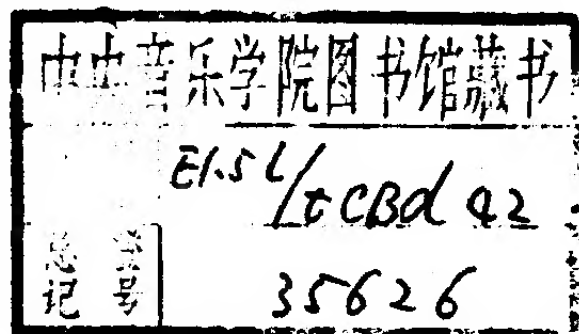 中央音乐学院图书馆藏书
E1.5L/tCBd42
总登
记号
35626